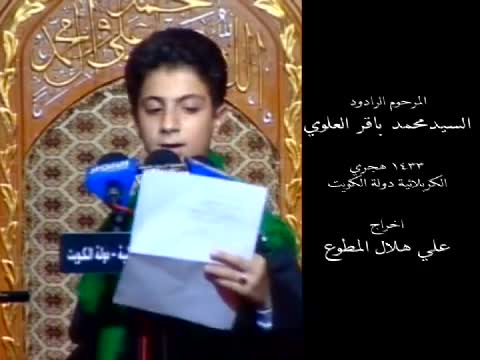 المرحوم الرادود
السيد محمد باقر العلوي
١٤٣٣ هجري
الكربلائية دولة الكويت
اخراج
علي هلال المطوع
ية - دولة الكويت